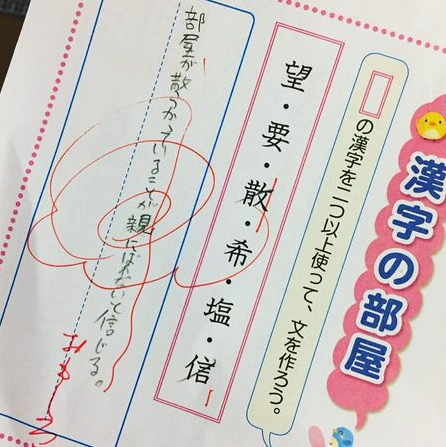 漢字の部屋
の漢字を二つ以上使って、文を作ろう。
望・要・散・希・塩・信
部屋が散らかっていることが親にばれないと信じる。
おもしろい